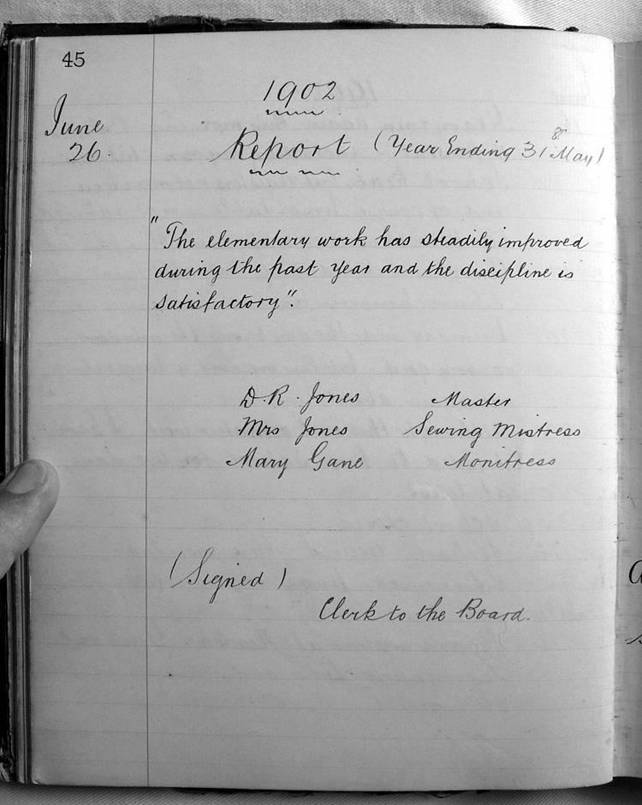 45
1902
June
26.
Report (Year Ending 31st May)
"The elementary work has steadily improved
during the past year and the discipline is
satisfactory".
D.R. Jones Master
Mrs Jones Sewing Mistress
Mary Gane Monitress
(Signed)
Clerk to the Board.